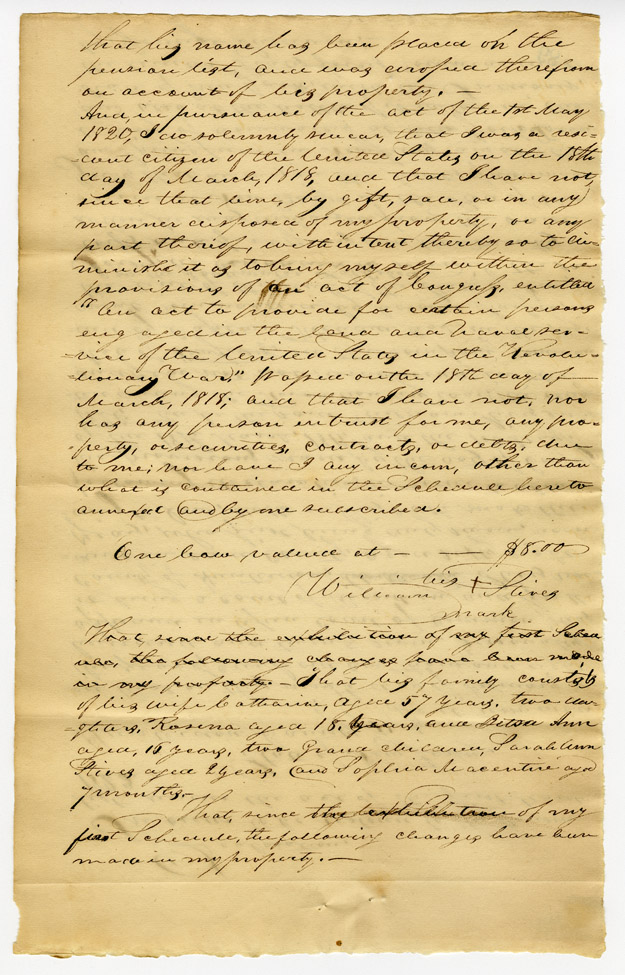 that his name has been placed on the
pension list, and was droped therefrom
on account of his property. —
And in pursuance of the act of the 1st May
1820, I do solemnly swear, that I was a resi-
-dent citizen of the United States on the 18th
day of March, 1818, and that I have not,
since that time, by gift, sale, or in any
manner disposed of my property, or any
part therof, with intent thereby so to dim-
minish it as to bring myself within the
provisions of an act of Congress, entitled
"An act to provide for certain persons
engaged in the land and Naval ser-
-vice of the United States in the Revolu-
-tionary War," passed on the 18th day of
March, 1818; and that I have not, nor
has any person in trust for me, any pro-
-perty, or securities, contracts, or debts, due
to me; nor have I any incom, other than
what is contained in the Schedule hereto
annexed and by me subscribed.
One cow valued at — — $8.00
his
William + Stives
mark
That, since the exhibition of my first Schedule, the following changes have been made
in my property. — That his family consists
of his wife Catharine, aged 57 years, two dau-
-ghters, Rosena aged 18 years, and Betsa Ann
aged, 16 years, two Grand children, Sarah Ann
Stives aged 2 years, and Sophia Macentire aged
7 months. —
That, since the exhibition of my
first Schedule, the following changes have been
made in my property. —